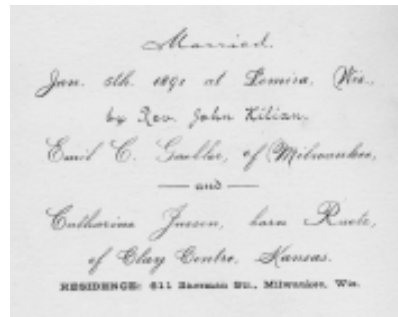 Married.
Jan. 5th. 1891 at Lomira, Wis.,
by Rev. John Kilian.
Emil C. Gaebler, of Milwaukee,
and
Catharine Jussen, born Ruetz,
of Clay Centre, Kansas.
RESIDENCE: 611 Sherman St., Milwaukee, Wis.